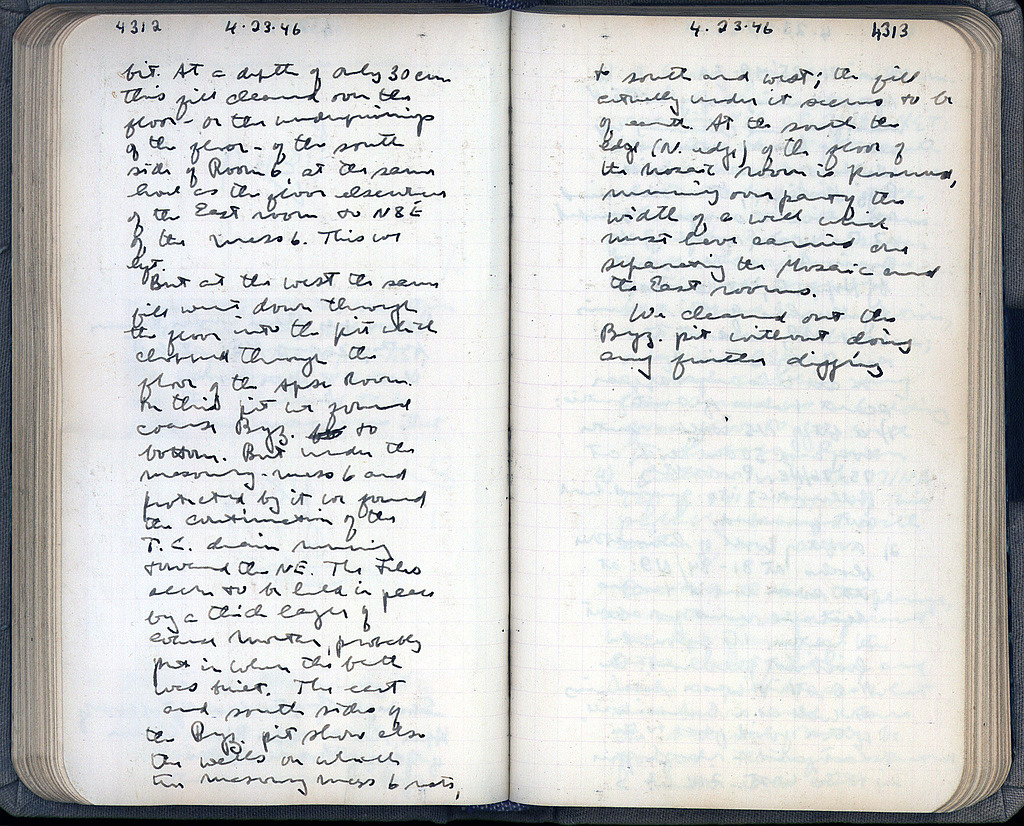 4312 4.23.46
bit. At a depth of only 30 cm
this fill cleaned over the
floor - or the underpinnings
of the floor - of the south
side of Room 6, at the same
level as the floor elsewhere
of the East room to N & E
of the mass 6. This we
left.
But at the west the same
fill went down through
the floor into the pit which
chopped through the
floor of the Apse Room.
In this pit we found
coarse Byz. to
bottom. But under the
masonry-mass 6 and
protected by it we found
the continuation of the
T.C. drain running
toward the NE. The tiles
seem to be held in place
by a thick layer of
coarse mortar, probably
put in when the bath
was built. The east
and south sides of
the Byz. pit show also
the walls on which
this masonry mass 6 rests,
4.23.46 4313
to south and west; the fill
actually under it seems to be
of earth. At the south the
edge (N. edge) of the floor of
the Mosaic Room is preserved,
running over party the
width of a wall which
must have carried one
separating the Mosaic and
the East rooms.
We cleaned out the
Byz. pit without doing
any further digging